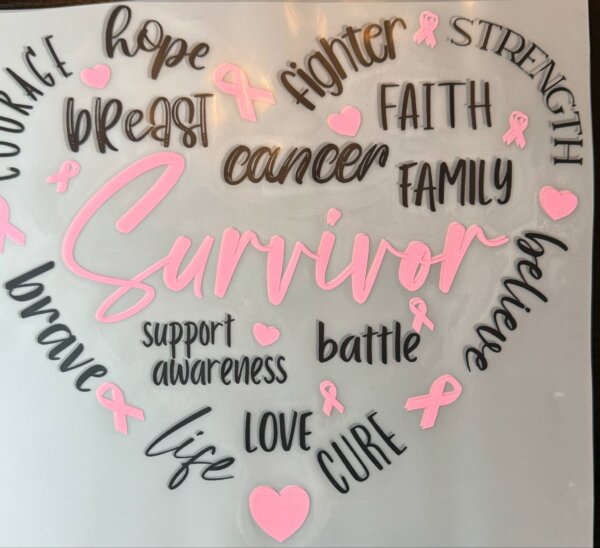 COURAGE
hope
fighter
STRENGTH
bReaST
FAITH
cancer
FAMILY
Survivor
believe
brave
support
awareness
battle
life
LOVE
CURE